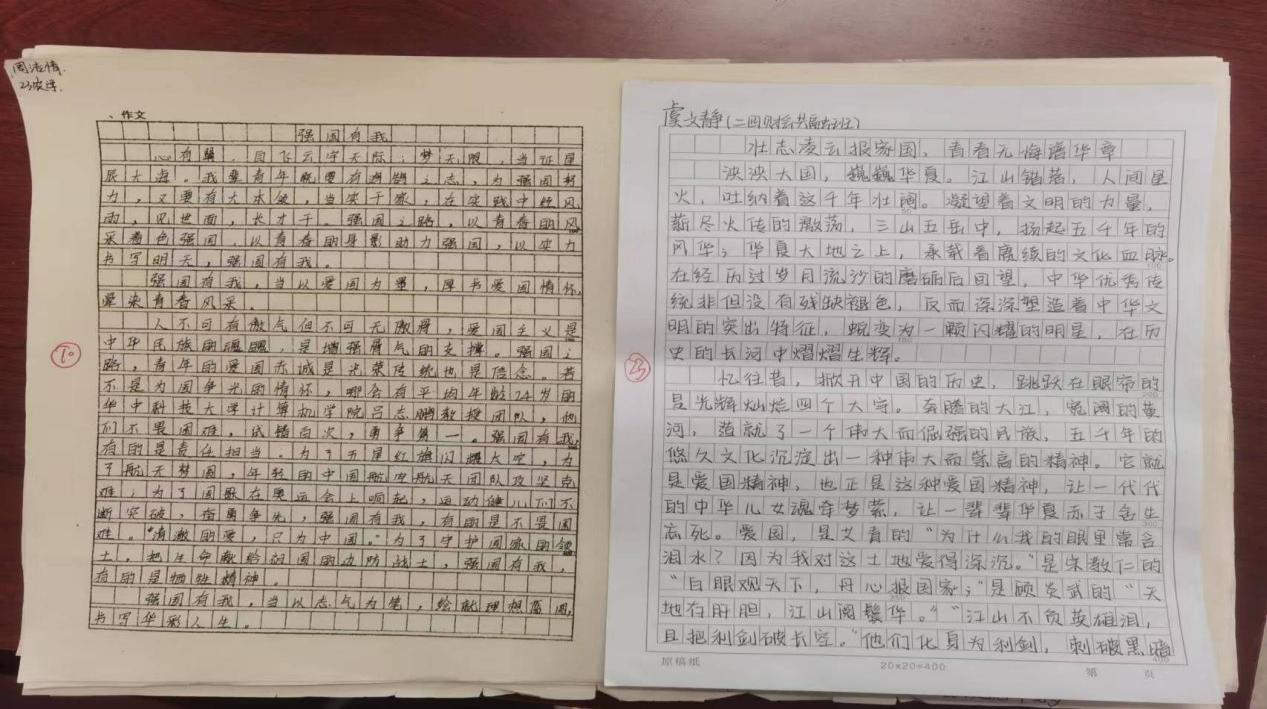 23农学
、作文
强国有我
心有翼，自飞云宇天际；梦无限，当征星
辰大海。我辈青年既要有鸿鹄之志，为强国努
力，又要有大本领，当实干家，在实践中经风
雨，见世面，长才干。强国之路，以青春的风
采着色强国，以青春的身影助力强国，以实力
书写明天，强国有我。
强国有我，当以爱国为墨，厚书爱国情怀，
晕染青春风采。
人不可有傲气但不可无傲骨，爱国主义是
中华民族的魂魄，是增强骨气的支撑。强国之
路，青年的爱国赤诚是光荣传统也是信念。若
不是为国争光的情怀，哪会有平均年龄24岁的
华中科技大学计算机学院吕志鹏教授团队，他
们不畏困难，试错百次，勇争第一。强国有我，
有的是责任担当。为了五星红旗闪耀太空，为
了航天梦圆，年轻的中国航空航天团队攻坚克
难；为了国歌在奥运会上响起，运动健儿们不
断突破，奋勇争先，强国有我，有的是不畏困
难。“清澈的爱，只为中国。”为了守护国家的领
土，把生命献给祖国的边防战士，强国有我，
有的是牺牲精神。
强国有我，当以志气为笔，绘就理想蓝图，
书写华彩人生。
10
虞文静（二四财会共富班）
壮志凌云报家国，青春无悔谱华章
泱泱大国，巍巍华夏。江山锦落，人间星
火，吐纳着这千年壮阔。凝望着文明的力量，
薪尽火传的激荡，三山五岳中，扬起五千年的
风华；华夏大地之上，承载着赓续的文化血脉。
在经历过岁月流沙的磨砺后回望，中华优秀传
统非但没有残缺褪色，反而深深塑造着中华文
明的突出特征，蜕变为一颗闪耀的明星，在历
史的长河中熠熠生辉。
忆往昔，掀开中国的历史，跳跃在眼帘的
是光辉灿烂四个大字。奔腾的大江，宽阔的黄
河，造就了一个伟大而倔强的民族，五千年的
悠久文化沉淀出一种伟大而崇高的精神。它就
是爱国精神，也正是这种爱国精神，让一代代
的中华儿女魂牵梦萦，让一辈辈华夏赤子舍生
忘死。爱国，是艾青的“为什么我的眼里常含
泪水？因为我对这土地爱得深沉。”是宋教仁的
“白眼观天下，丹心报国家；”是顾炎武的“天
地存肝胆，江山阅鬓华。“”江山不负英雄泪，
且把利剑破长空。”他们化身为利剑，刺破黑暗
23
原稿纸
20×20=400
第 页